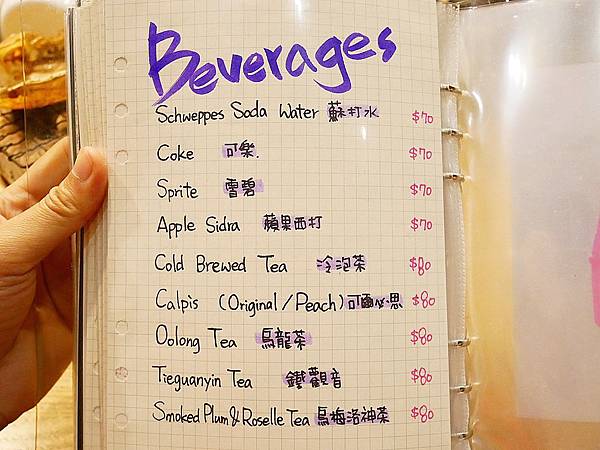 Beverages
Schweppes Soda Water 蘇打水 $70
Coke 可樂. $70
Sprite 雪碧 $70
Apple Sidra 蘋果西打 $70
Cold Brewed Tea 冷泡茶 $80
Calpis (Original/Peach) 可爾必思 $80
Oolong Tea 烏龍茶 $80
Tieguanyin Tea 鐵觀音 $80
Smoked Plum & Roselle Tea 烏梅洛神茶 $80